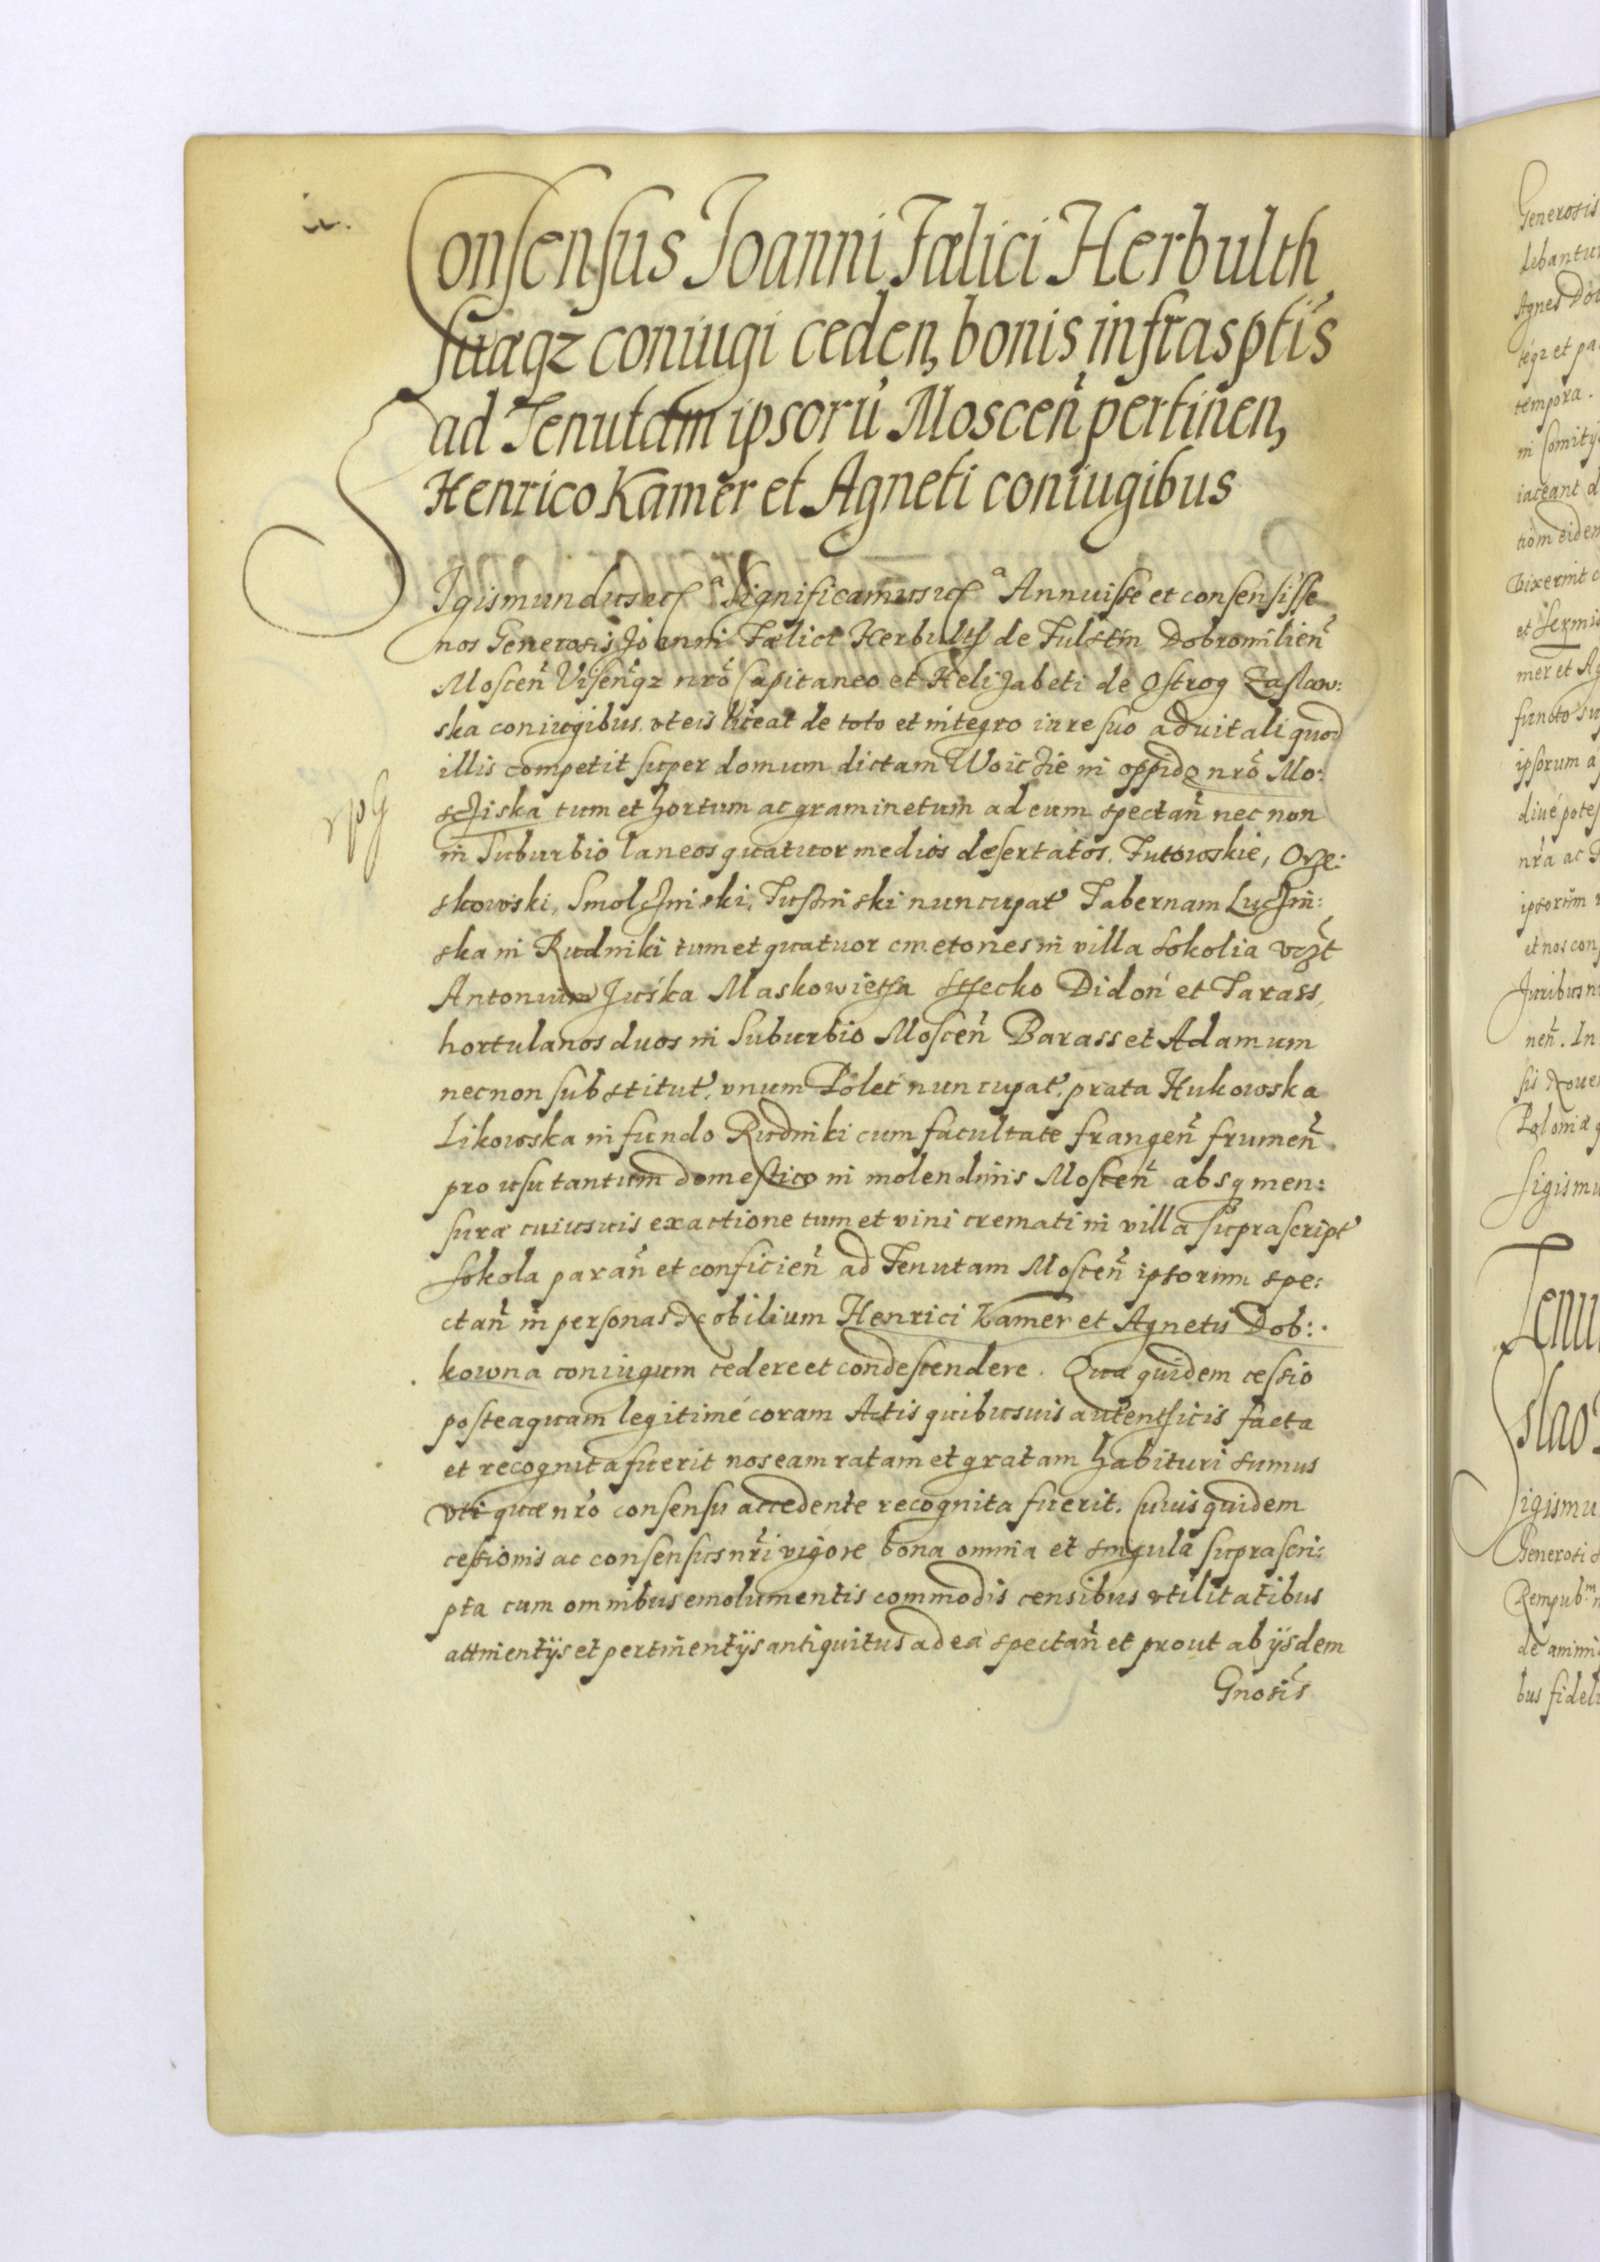 Consensus Joanni Fælici Herbulth
suæqz coniugi ceden, bonis infrasptis
ad Tenutam ipsorũ Moscen̄ pertinen,
Henrico Kamer et Agneti coniugibus
Sigismundus etc̃ a Significamus etc̃ a Annuisse et consensisse
nos Generosis Joanni Fælici Herbulth de Fulstin Dobromilien̄
Moscen̄ Visen̄qz nrõ Capitaneo et Helizabeti de Ostrog Zaslaw:
ska coniugibus. vt eis liceat de toto et integro iure suo aduitali quod
illis competit super domum dictam Woiczie in oppido nrõ Mo:
scziska tum et hortum ac graminetum ad eum spectan̄ nec non
in Suburbio laneos quatuor medios desertatos. Tutowskie, Orze:
skowski, Smolczinski, Tuszinski nuncupat Tabernam Luczin:
ska in Rudniki tum et quatuor cmetones in villa Sokolia vczt
Antonium Juśka Maskowietha Sthecko Didoń et Tarass
hortulanos duos in Suburbio Moscen̄ Barass et Adamum
necnon substitut. vnum Poleć nuncupat. prata Hukowska
Likowska in fundo Rudniki cum facultate frangen̄ frumen̄
pro usu tantum domestico in molendinis Moscen̄ absq men:
suræ cuiusuis exactione tum et vini cremati in villa suprascript
Sokola paran̄ et conficien̄ ad Tenutam Moscen̄ ipsorum spe:
ctan̄ in personas Nobilium Henrici Kamer et Agnetis Dob:
kowna coniugum cedere et condescendere. Quæ quidem cessio
posteaquam legitimé coram Actis quibusuis autenthicis facta
et recognita fuerit nos eam ratam et gratam habituri sumus
vti quæ nrõ consensu accedente recognita fuerit. Cuius quidem
cessionis ac consensus nri vigore bona omnia et singula suprascri:
pta cum omnibus emolumentis commodis censibus vtilitatibus
attinentijs et pertinentijs antiquitus ad ea spectan̄ et prout ab ijsdem
Gnosis